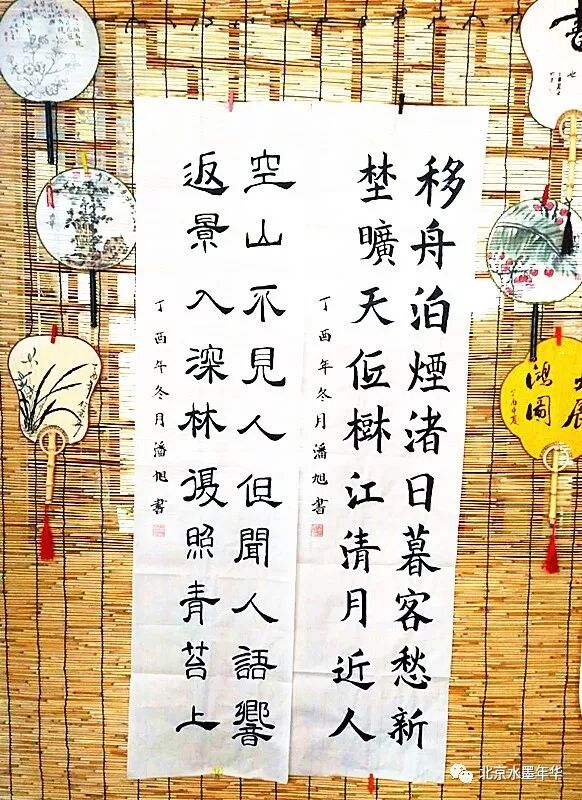 移舟泊煙渚日暮客愁新
埜曠天低樹江清月近人
丁酉年冬月潘旭書
空山不見人但聞人語響
返景入深林復照青苔上
丁酉年冬月潘旭書
鴻圖
北京水墨年华